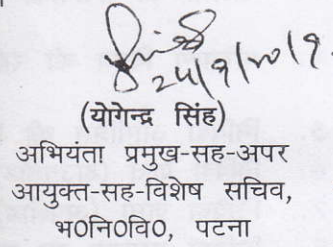 24/9/2019.
(योगेन्द्र सिंह)
अभियंता प्रमुख-सह-अपर
आयुक्त-सह-विशेष सचिव,
भ०नि०वि०, पटना